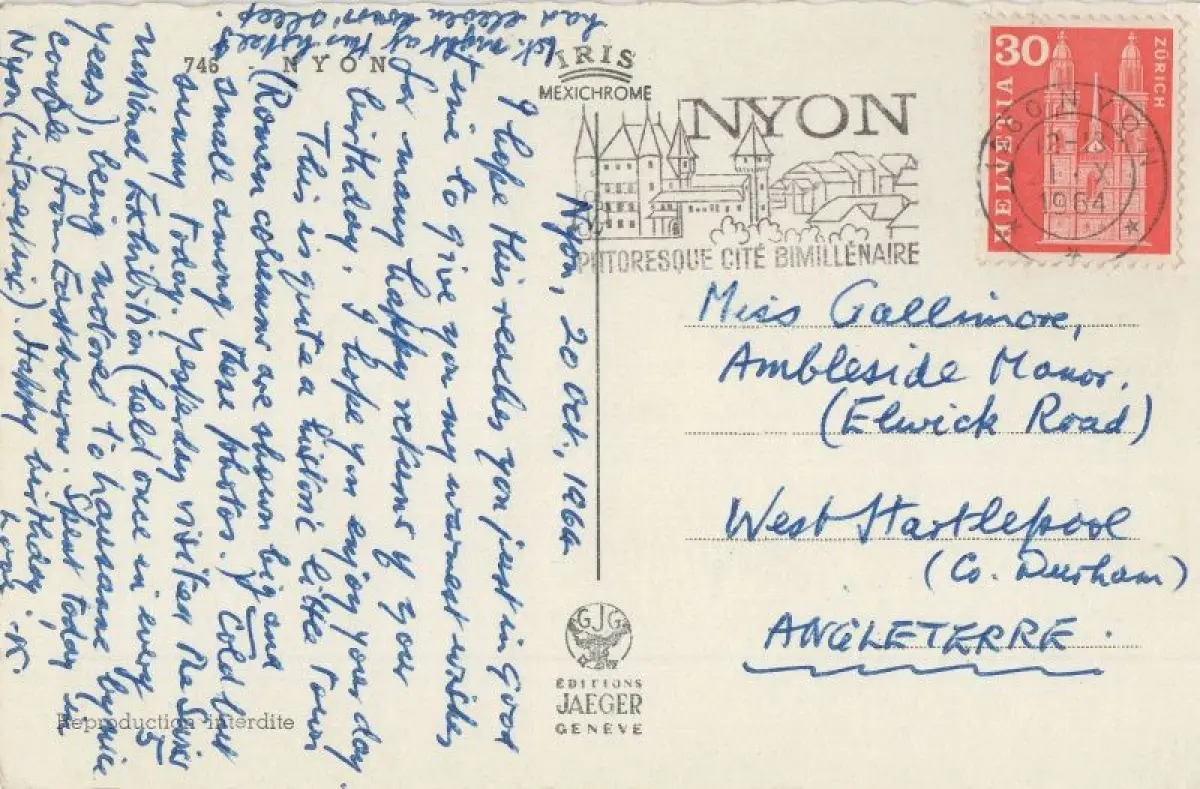 746 - NYON
IRIS
MEXICHROME
NYON
PITTORESQUE CITÉ BIMILLÉNAIRE
30
HELVETIA
ZÜRICH
1260 NYON
X
1964
Nyon, 20 Oct., 1964
I hope this reaches you just in good
time to give you my warmest wishes
for many happy returns of your
birthday. I hope you enjoy your day.
This is quite a historic little town
(Roman columns are shown big and
small among these photos.) Cold but
sunny today. Yesterday visited the Swiss
national Exhibition (held once in every 25
years), being motored to Lausanne by nice
couple from Eastbourne. Spent today in
Nyon (interesting). Happy birthday.
Love,
1st. night at this hotel
had eleven hours' sleep
Miss Gallimore,
Ambleside Manor.
(Elwick Road)
West Hartlepool
(Co. Durham)
ANGLETERRE.
GJG
ÉDITIONS
JAEGER
GENÈVE
Reproduction interdite